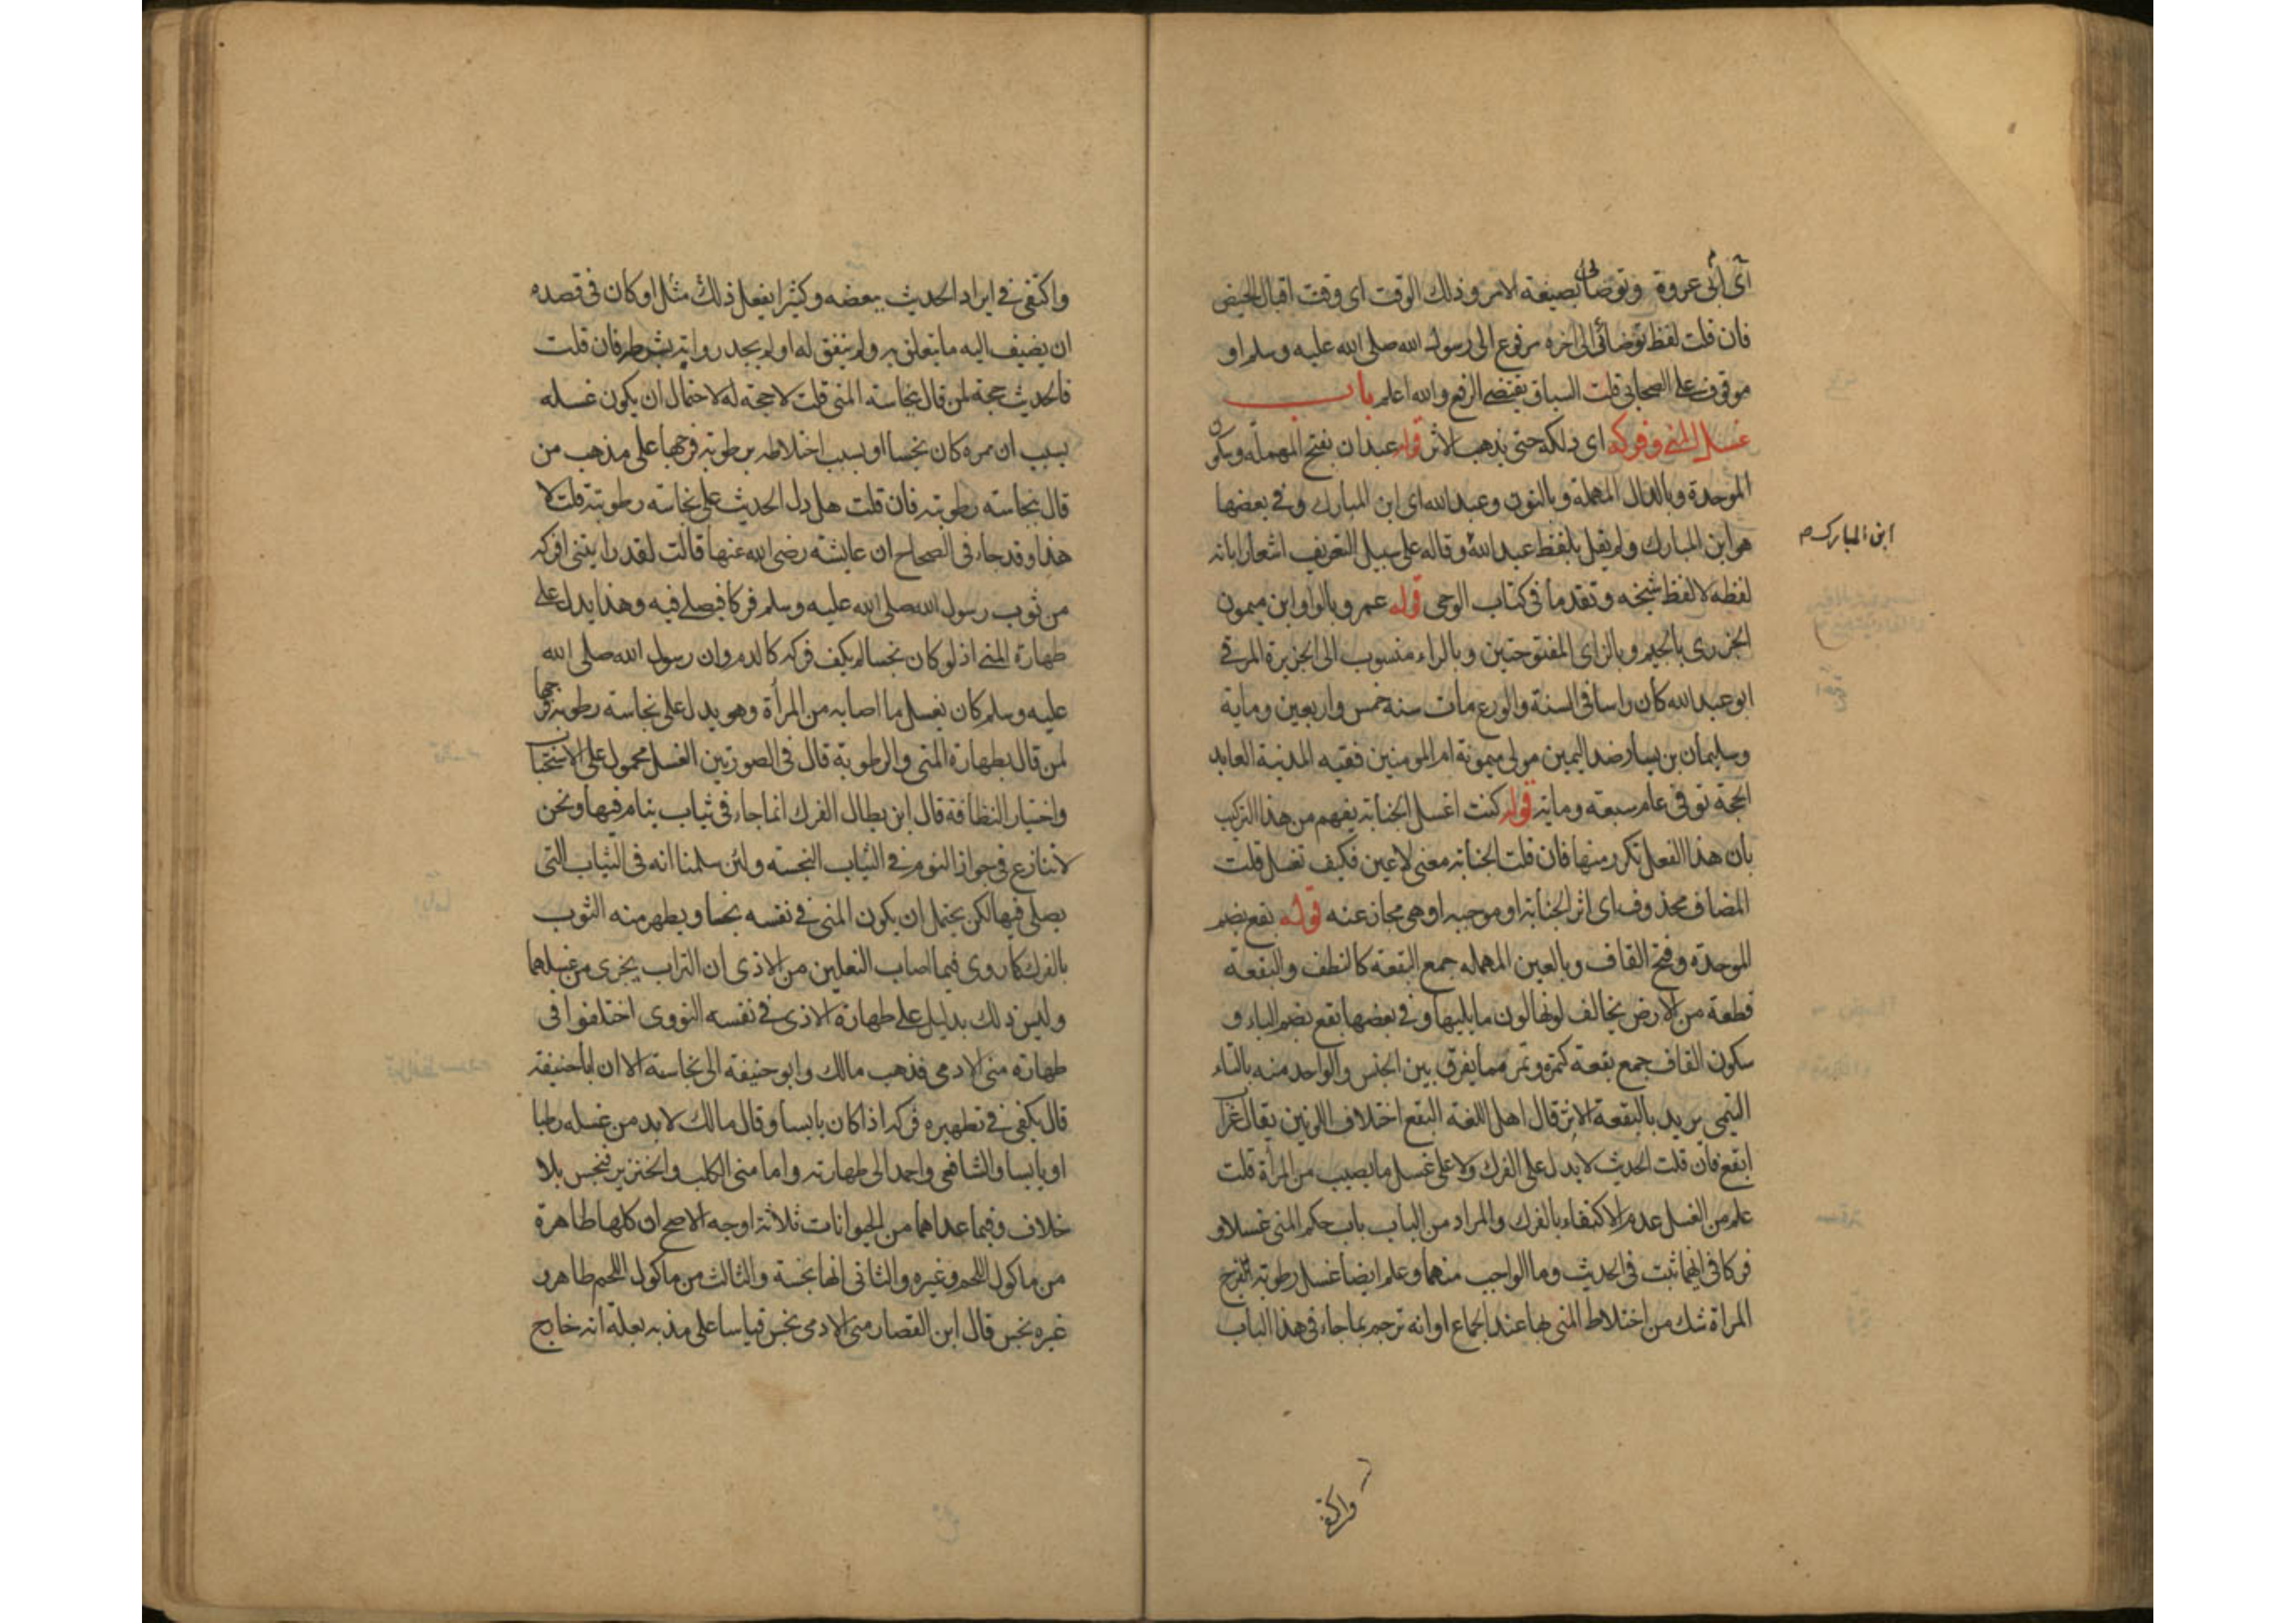 اى ابى عروة وتوضأى بصيغة الامر وذلك الوقت اى وقت اقبال الحيض
فان قلت لفظ توضائى الى اخره مرفوع الى رسول الله صلى الله عليه وسلم او
موقوف على الصحابى قلت السياق يقتضى الرفع والله اعلم باب
غسل المنى وفركه اى دلكه حتى يذهب الاثر قوله عبدان بفتح المهملة وسكون
الموحدة وبالدال المهملة وبالنون وعبد الله اى ابن المبارك وفى بعضها
هو ابن المبارك ولم يقل بلفظ عبد الله وقاله على سبيل التعريف اشعارا بانه
ابن المبارك م
لفظه لا لفظ شيخه وتقدما فى كتاب الوحى قوله عمرو بالواو ابن ميمون
الجزرى بالجيم وبالزاى المفتوحتين وبالراء منسوب الى الجزيرة الرقى
ابو عبد الله كان راسا فى السنة والورع مات سنة خمس واربعين وماية
وسليمان بن يسار ضد اليمين مولى ميمونة ام المومنين فقيه المدينة العابد
الحجة توفى عام سبعة وماية قوله كنت اغسل الجنابة يفهم من هذا التركيب
بان هذا الفعل تكرر منها فان قلت الجنابة معنى لا عين فكيف تغسل قلت
المضاف محذوف اى اثر الجنابة او موجبه او هى مجاز عنه قوله بقع بضم
الموحدة وفتح القاف وبالعين المهملة جمع البقعة كالنطف والبقعة
قطعة من الارض يخالف لونها لون ما يليها وفى بعضها بقع بضم الباء و
سكون القاف جمع بقعة كتمرة وتمر مما يفرق بين الجنس والواحد منه بالتاء
التيمى يريد بالبقعة الاثر قال اهل اللغة البقع اختلاف اللونين يقال غراب
ابقع فان قلت الحديث لا يدل على الفرك ولا على غسل ما يصيب من المرأة قلت
علم من الغسل عدم الاكتفاء بالفرك والمراد من الباب باب حكم المنى غسلا و
فركا فى ايهما ثبت فى الحديث وما الواجب منهما وعلم ايضا غسل رطوبة فرج
المرأة شك من اختلاط المنى بها عند الجماع او انه ترجم بما جاء فى هذا الباب
واكتفى
واكتفى فى ايراد الحديث ببعضه وكثيرا يفعل ذلك مثل او كان فى قصده
ان يضيف اليه ما يتعلق به ولم يتفق له او لم يجد رواية بشرطه فان قلت
فالحديث حجة لمن قال بنجاسة المنى قلت لا حجة له لاحتمال ان يكون غسله
بسبب ان ممره كان نجسا او بسبب اختلاطه برطوبة فرجها على مذهب من
قال بنجاسة رطوبته فان قلت هل دل الحديث على نجاسة رطوبته قلت لا
هذا وقد جاء فى الصحاح ان عايشة رضى الله عنها قالت لقد رايتنى افركه
من ثوب رسول الله صلى الله عليه وسلم فركا فيصلى فيه وهذا يدل على
طهارة المنى اذ لو كان نجسا لم يكف فركه كالدم وان رسول الله صلى الله
عليه وسلم كان يغسل ما اصابه من المرأة وهو يدل على نجاسة رطوبة فرجها
لمن قال بطهارة المنى والرطوبة قال فى الصورتين الغسل محمول على الاستحباب
واختيار النظافة قال ابن بطال الفرك انما جاء فى ثياب ينام فيها ونحن
لا ننازع فى جواز النوم فى الثياب النجسة ولئن سلمنا انه فى الثياب التى
يصلى فيها لكن يحتمل ان يكون المنى فى نفسه نجسا ويطهر منه الثوب
بالفرك كما روى فيما اصاب النعلين من الاذى ان التراب يجزى من غسلهما
وليس ذلك بدليل على طهارة الاذى فى نفسه النووى اختلفوا فى
طهارة منى الادمى فذهب مالك وابو حنيفة الى نجاسة الا ان ابا حنيفة
قال يكفى فى تطهيره فركه اذا كان يابسا وقال مالك لا بد من غسله رطبا
او يابسا والشافعى واحمد الى طهارته واما منى الكلب والخنزير فنجس بلا
خلاف وفيما عداهما من الحيوانات ثلاثة اوجه الاصح ان كلها طاهرة
من ماكول اللحم وغيره والثانى انها نجسة والثالث من ماكول اللحم طاهر و
غيره نجس قال ابن القصار منى الادمى نجس قياسا على مذيه بعلة انه خارج